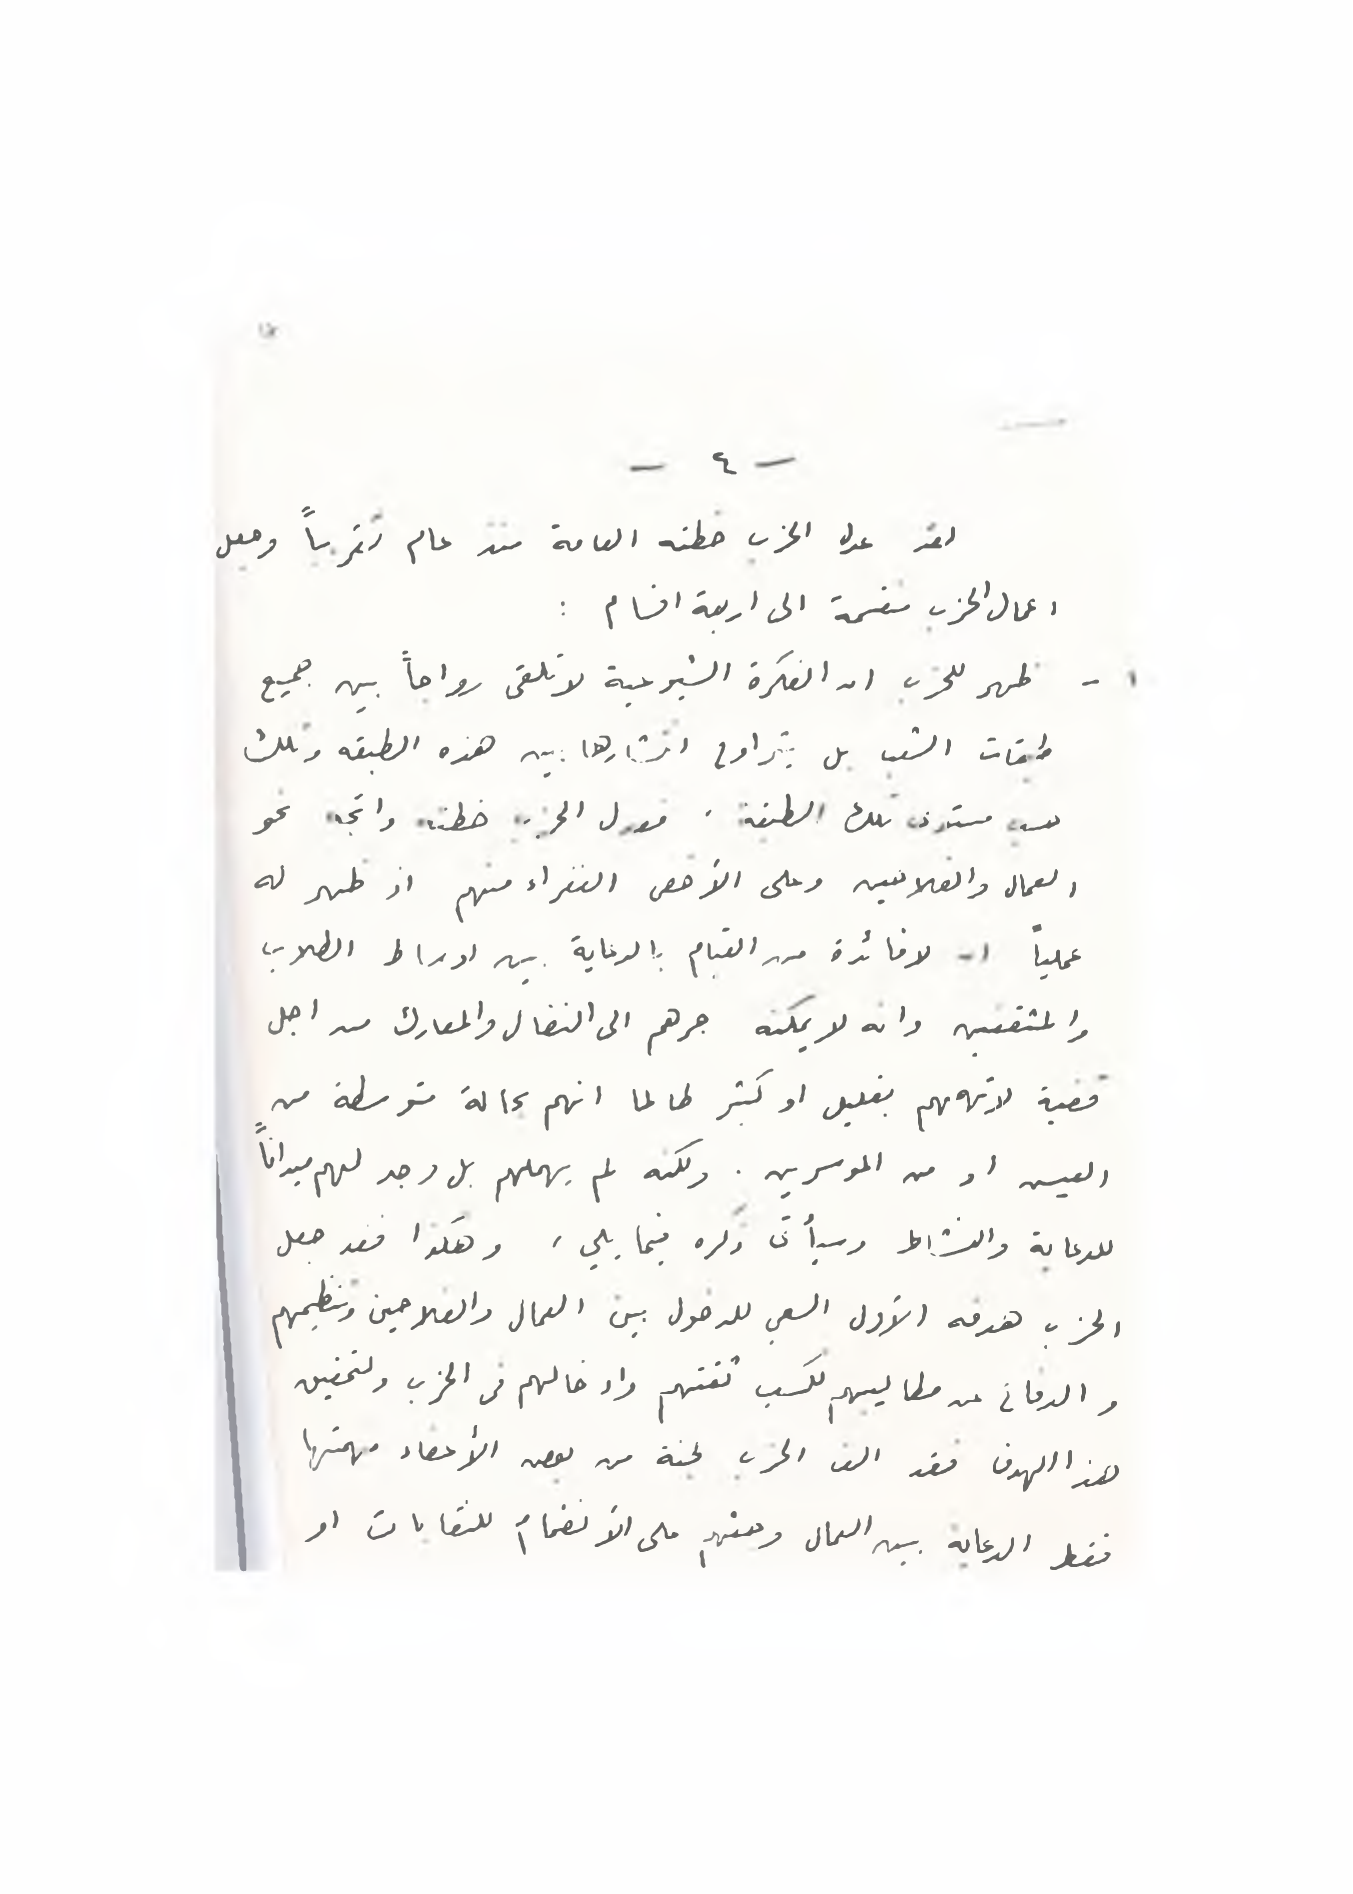 - ٤ -
لقد عدل الحزب خطته العامة منذ عام تقريباً وجعل
اعمال الحزب منقسمة الى اربعة اقسام :
١ - ظهر للحزب ان الفكرة الشيوعية لا تلقى رواجاً بين جميع
طبقات الشعب بل يتراوح انتشارها بين هذه الطبقه وتلك
حسب مستوى تلك الطبقة . فعدل الحزب خطته واتجه نحو
العمال والفلاحين وعلى الأخص الفقراء منهم اذ ظهر له
عملياً ان لا فائدة من القيام بالدعاية بين اوساط الطلاب
والمثقفين وانه لا يمكنه جرهم الى النضال والمعارك من اجل
قضية لا تهمهم بقليل او كثير طالما انهم بحالة متوسطة من
العيش او من الموسرين . ولكنه لم يهملهم بل وجد لهم ميداناً
للدعاية والنشاط وسيأتى ذكره فيما يلي ، وهكذا فقد جعل
الحزب هدفه الأول السعي للدخول بين العمال والفلاحين وتنظيمهم
والدفاع عن مطاليبهم لكسب ثقتهم وادخالهم فى الحزب ولتحقيق
هذا الهدف فقد الف الحزب لجنة من بعض الأعضاء مهمتها
فقط الدعاية بين العمال وحثهم على الأنضمام للنقابات او